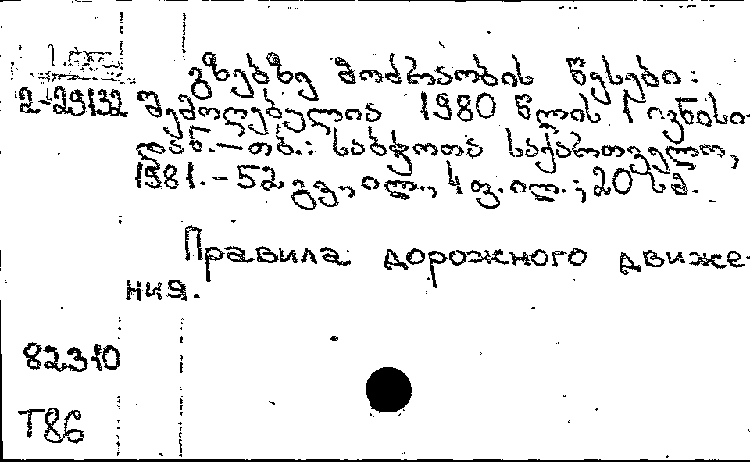 გზებზე მოძრაობის წესები:
2-29132 შემოღებულია 1980 წლის 1 ივნისი-
დან. — თბ.: საბჭოთა საქართველო,
1981. — 52 გვ., ილ., 4 ფ. ილ.; 20 სმ.
Правила дорожного движе-
ния.
82310
Т86